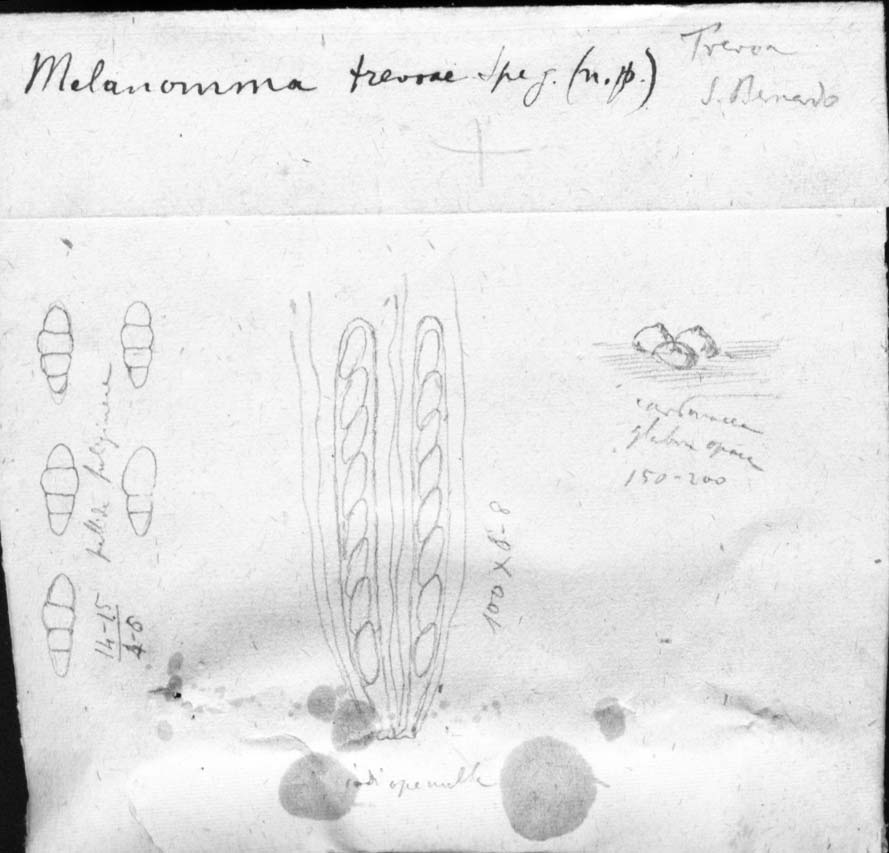 Melanomma trevoae Speg. (n. sp.)
Trevoa
S. Bernardo
carbonacea
glabra opaca
150-200
pallide fuliginea
14-15
4-6
100 X 8-8
iodi ope nulla